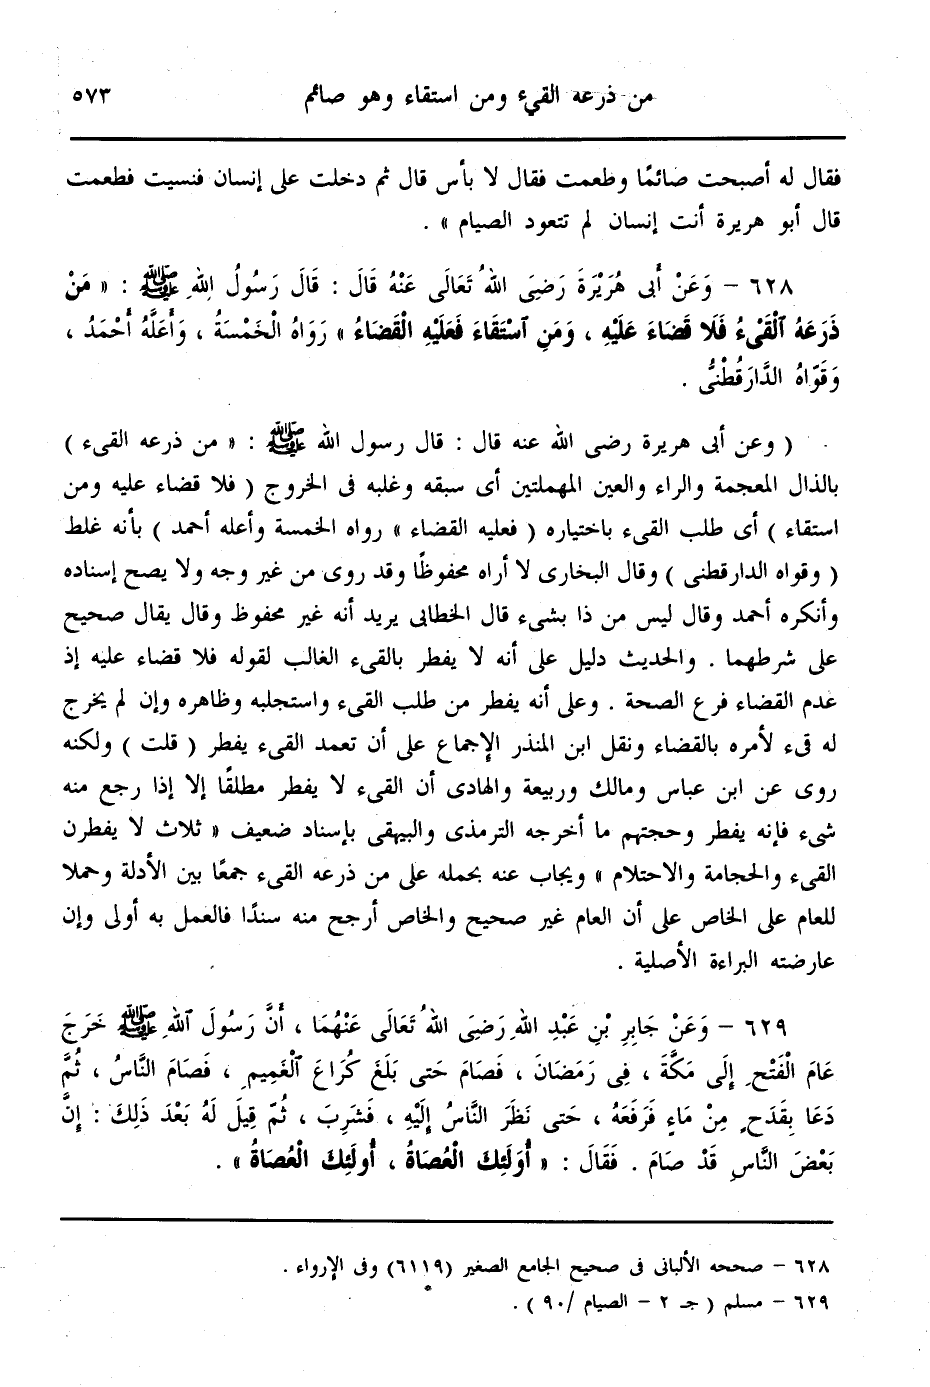 من ذرعه القيء ومن استقاء وهو صائم ٥٧٣
فقال له أصبحت صائمًا وطعمت فقال لا بأس قال ثم دخلت على إنسان فنسيت فطعمت
قال أبو هريرة أنت إنسان لم تتعود الصيام » .
٦٢٨ – وَعَنْ أَبِى هُرَيْرَةَ رَضِىَ اللهُ تَعَالَى عَنْهُ قَالَ : قَالَ رَسُولُ اللهِ ﷺ : « مَنْ
ذَرَعَهُ ٱلْقَىْءُ فَلَا قَضَاءَ عَلَيْهِ ، وَمَنِ ٱسْتَقَاءَ فَعَلَيْهِ الْقَضَاءُ » رَوَاهُ الْخَمْسَةُ ، وَأَعَلَّهُ أَحْمَدُ ،
وَقَوّاهُ الدَّارَقُطْنىُّ .
( وعن أبى هريرة رضى الله عنه قال : قال رسول الله ﷺ : « من ذرعه القىء )
بالذال المعجمة والراء والعين المهملتين أى سبقه وغلبه فى الخروج ( فلا قضاء عليه ومن
استقاء ) أى طلب القىء باختياره ( فعليه القضاء » رواه الخمسة وأعله أحمد ) بأنه غلط
( وقواه الدارقطنى ) وقال البخارى لا أراه محفوظًا وقد روى من غير وجه ولا يصح إسناده
وأنكره أحمد وقال ليس من ذا بشىء قال الخطابى يريد أنه غير محفوظ وقال يقال صحيح
على شرطهما . والحديث دليل على أنه لا يفطر بالقىء الغالب لقوله فلا قضاء عليه إذ
عدم القضاء فرع الصحة . وعلى أنه يفطر من طلب القىء واستجلبه وظاهره وإن لم يخرج
له قىء لأمره بالقضاء ونقل ابن المنذر الإجماع على أن تعمد القىء يفطر ( قلت ) ولكنه
روى عن ابن عباس ومالك وربيعة والهادى أن القىء لا يفطر مطلقًا إلا إذا رجع منه
شىء فإنه يفطر وحجتهم ما أخرجه الترمذى والبيهقى بإسناد ضعيف « ثلاث لا يفطرن
القىء والحجامة والاحتلام » ويجاب عنه بحمله على من ذرعه القىء جمعًا بين الأدلة وحملا
للعام على الخاص على أن العام غير صحيح والخاص أرجح منه سندًا فالعمل به أولى وإن
عارضته البراءة الأصلية .
٦٢٩ – وَعَنْ جَابِرِ بْنِ عَبْدِ اللهِ رَضِىَ اللهُ تَعَالَى عَنْهُمَا ، أَنَّ رَسُولَ ٱللهِ ﷺ خَرَجَ
عَامَ الْفَتْحِ إِلَى مَكَّةَ ، فِى رَمَضَانَ ، فَصَامَ حَتى بَلَغَ كُرَاعَ ٱلْغَمِيمِ ، فَصَامَ النَّاسُ ، ثُمَّ
دَعَا بِقَدَحٍ مِنْ مَاءٍ فَرَفَعَهُ ، حَتى نَظَرَ النَّاسُ إِلَيْهِ ، فَشَرِبَ ، ثُمّ قِيلَ لَهُ بَعْدَ ذَلِكَ : إِنَّ
بَعْضَ النَّاسِ قَدْ صَامَ . فَقَالَ : « أُولَئِكَ الْعُصَاةُ ، أُولَئِكَ الْعُصَاةُ » .
٦٢٨ – صححه الألبانى فى صحيح الجامع الصغير (٦١١٩) وفى الإرواء .
٦٢٩ – مسلم ( جـ ٢ – الصيام /٩٠ ) .